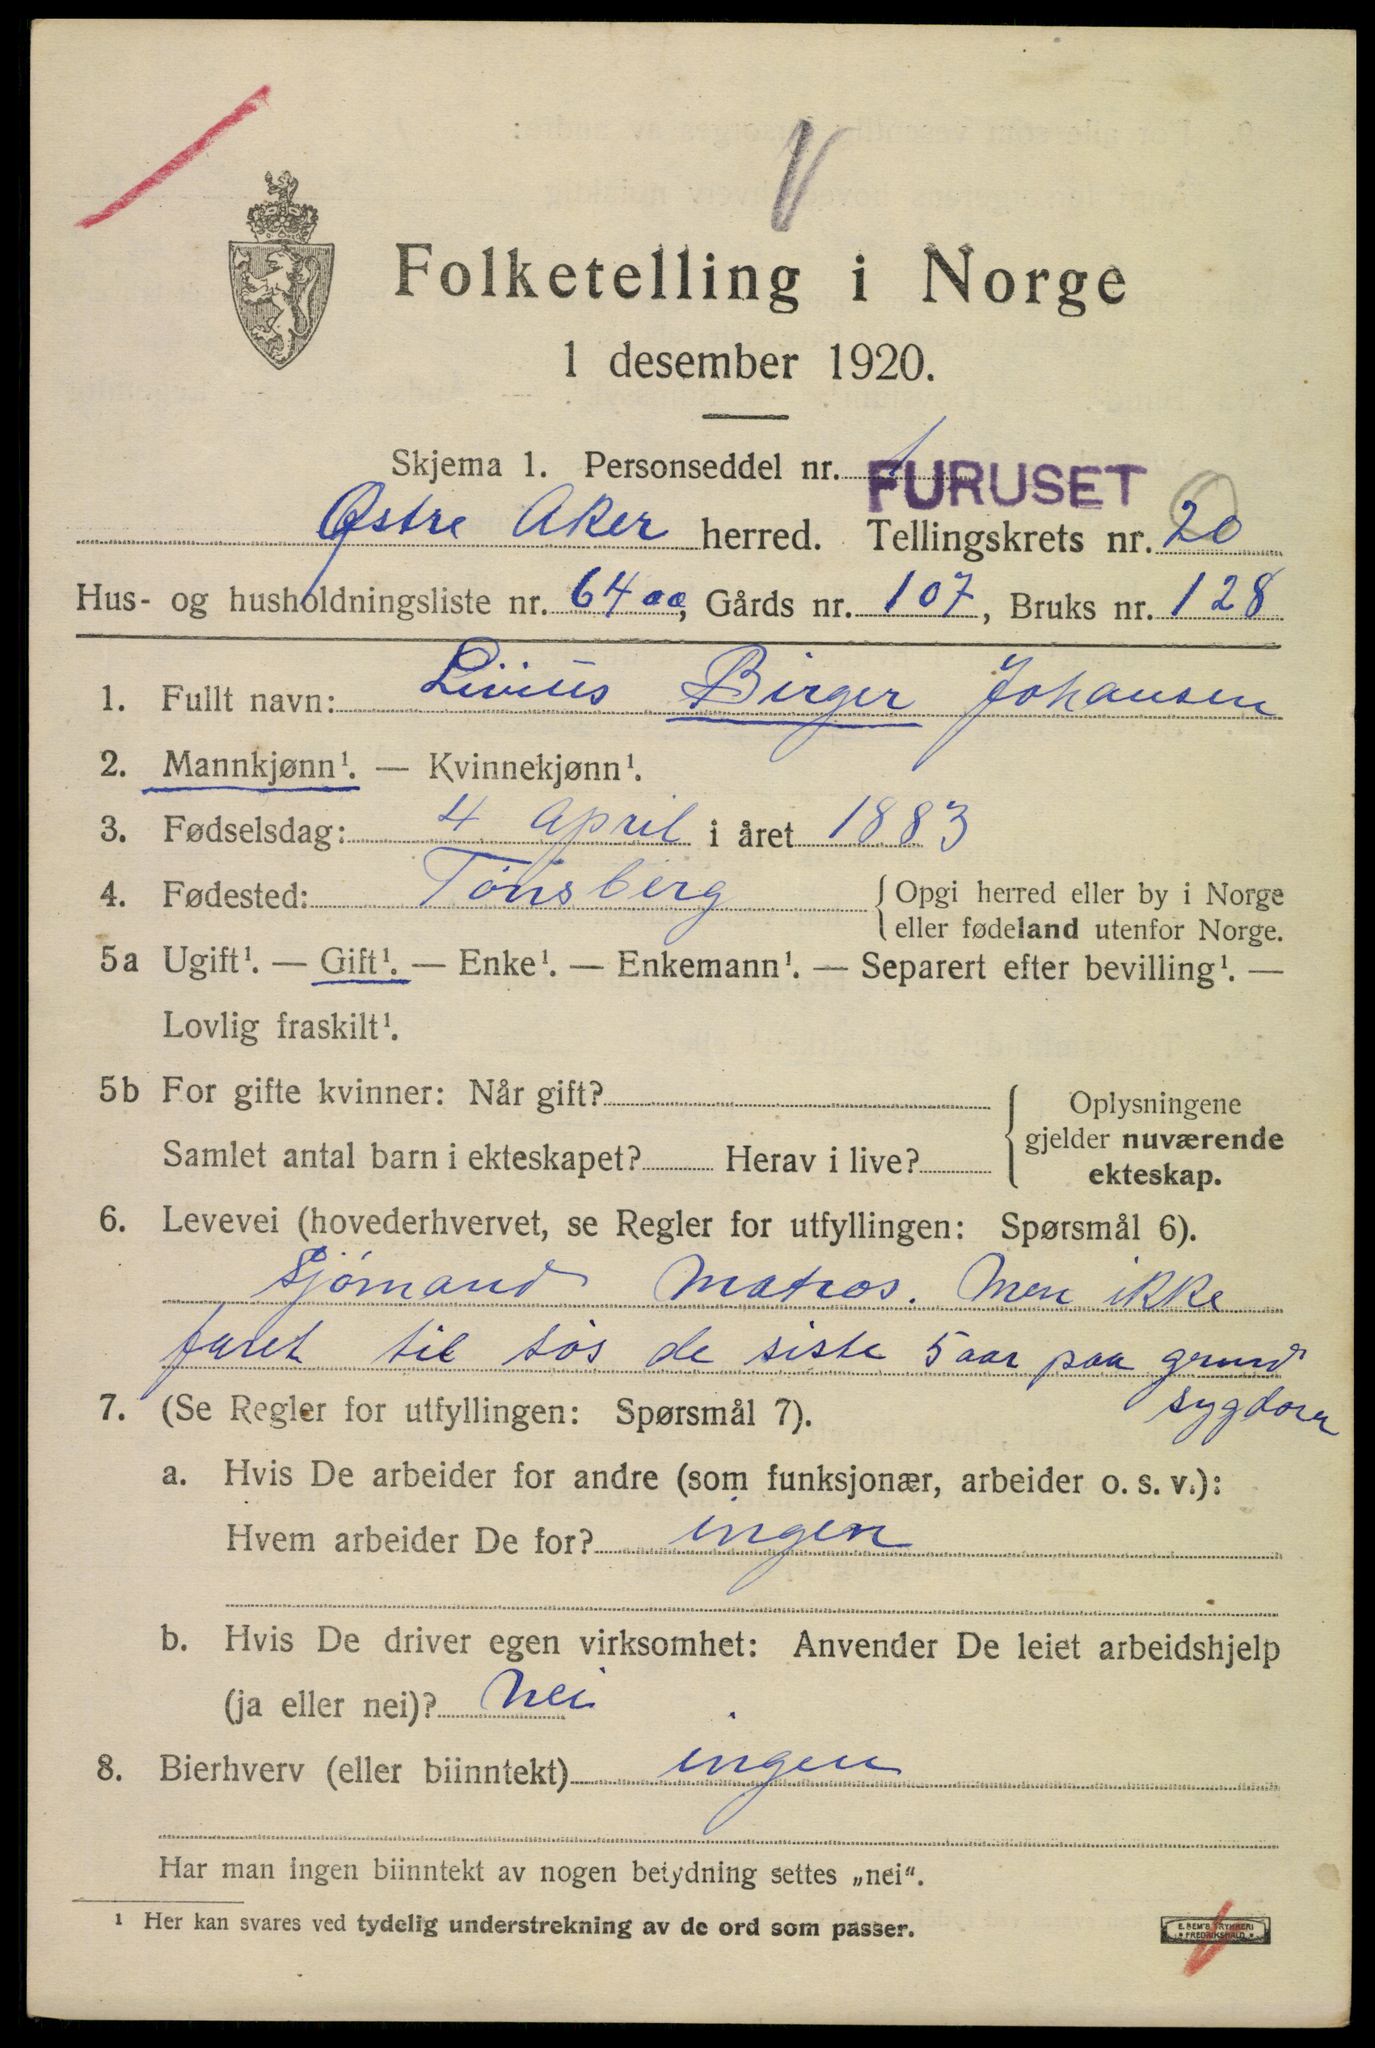 Folketelling i Norge
1 desember 1920.
Skjema 1. Personseddel nr. 1 FURUSET
Østre Aker herred. Tellingskrets nr. 20
Hus- og husholdningsliste nr. 64 oo, Gårds nr. 107, Bruks nr. 128
1. Fullt navn: Livius Birger Johansen
2. Mannkjønn¹. — Kvinnekjønn¹.
3. Fødselsdag: 4 april i året 1883
4. Fødested: Tønsberg { Opgi herred eller by i Norge
eller fødeland utenfor Norge.
5a Ugift¹. — Gift¹. — Enke¹. — Enkemann¹. — Separert efter bevilling¹. —
Lovlig fraskilt¹.
5b For gifte kvinner: Når gift? { Oplysningene
gjelder nuværende
Samlet antal barn i ekteskapet? Herav i live?
ekteskap.
6. Levevei (hovederhvervet, se Regler for utfyllingen: Spørsmål 6).
Sjømand Matros. Men ikke
faret til søs de siste 5 aar paa grund
sygdom
7. (Se Regler for utfyllingen: Spørsmål 7).
a. Hvis De arbeider for andre (som funksjonær, arbeider o. s. v.):
Hvem arbeider De for? ingen
b. Hvis De driver egen virksomhet: Anvender De leiet arbeidshjelp
(ja eller nei)? Nei
8. Bierhverv (eller biinntekt) ingen
Har man ingen biinntekt av nogen betydning settes „nei“.
¹ Her kan svares ved tydelig understrekning av de ord som passer.
E. SEM'S TRYKKERI
FREDRIKSHALD